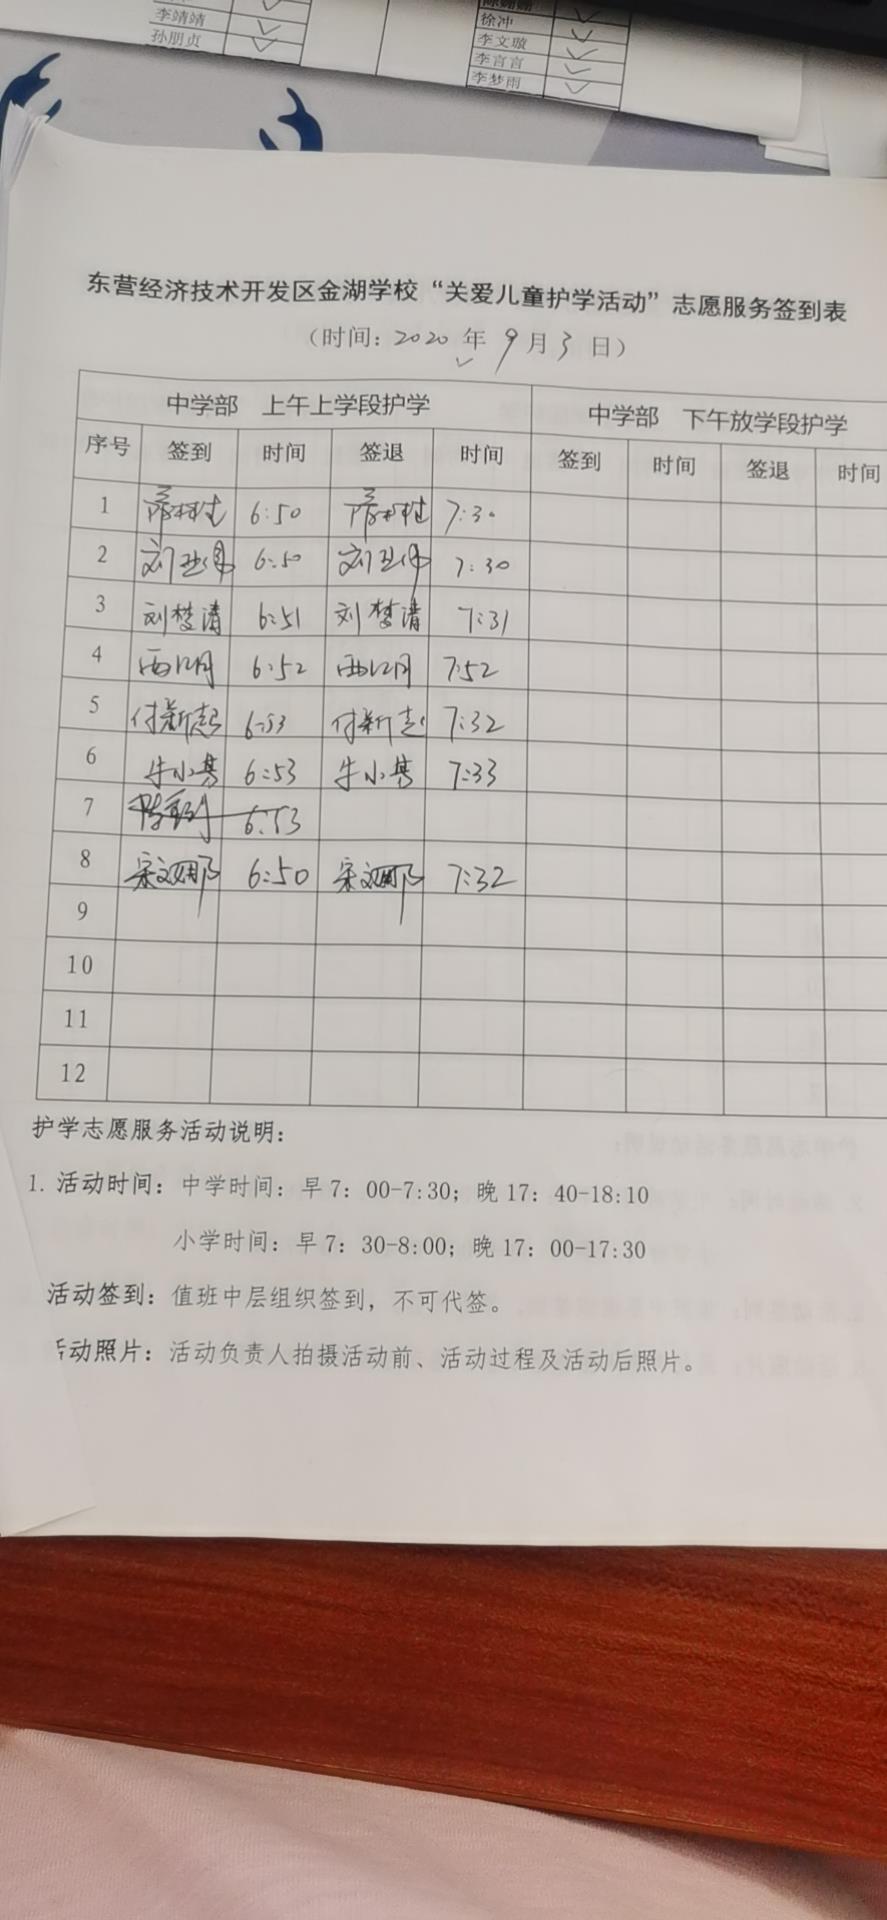 李靖靖
孙朋贞
徐冲
李文璇
李言言
李梦雨
东营经济技术开发区金湖学校“关爱儿童护学活动”志愿服务签到表
（时间：2020年9月3日）
中学部 上午上学段护学 中学部 下午放学段护学
序号 签到 时间 签退 时间 签到 时间 签退 时间
1 6:50 7:30
2 刘卫伟 6:50 刘卫伟 7:30
3 刘梦清 6:51 刘梦清 7:31
4 6:52 7:52
5 付新起 6:53 付新起 7:32
6 牛小菁 6:53 牛小菁 7:33
7 6:53
8 宋文娜 6:50 宋文娜 7:32
9
10
11
12
护学志愿服务活动说明：
1. 活动时间：中学时间：早7：00-7:30；晚17：40-18:10
小学时间：早7：30-8:00；晚17：00-17:30
活动签到：值班中层组织签到，不可代签。
活动照片：活动负责人拍摄活动前、活动过程及活动后照片。